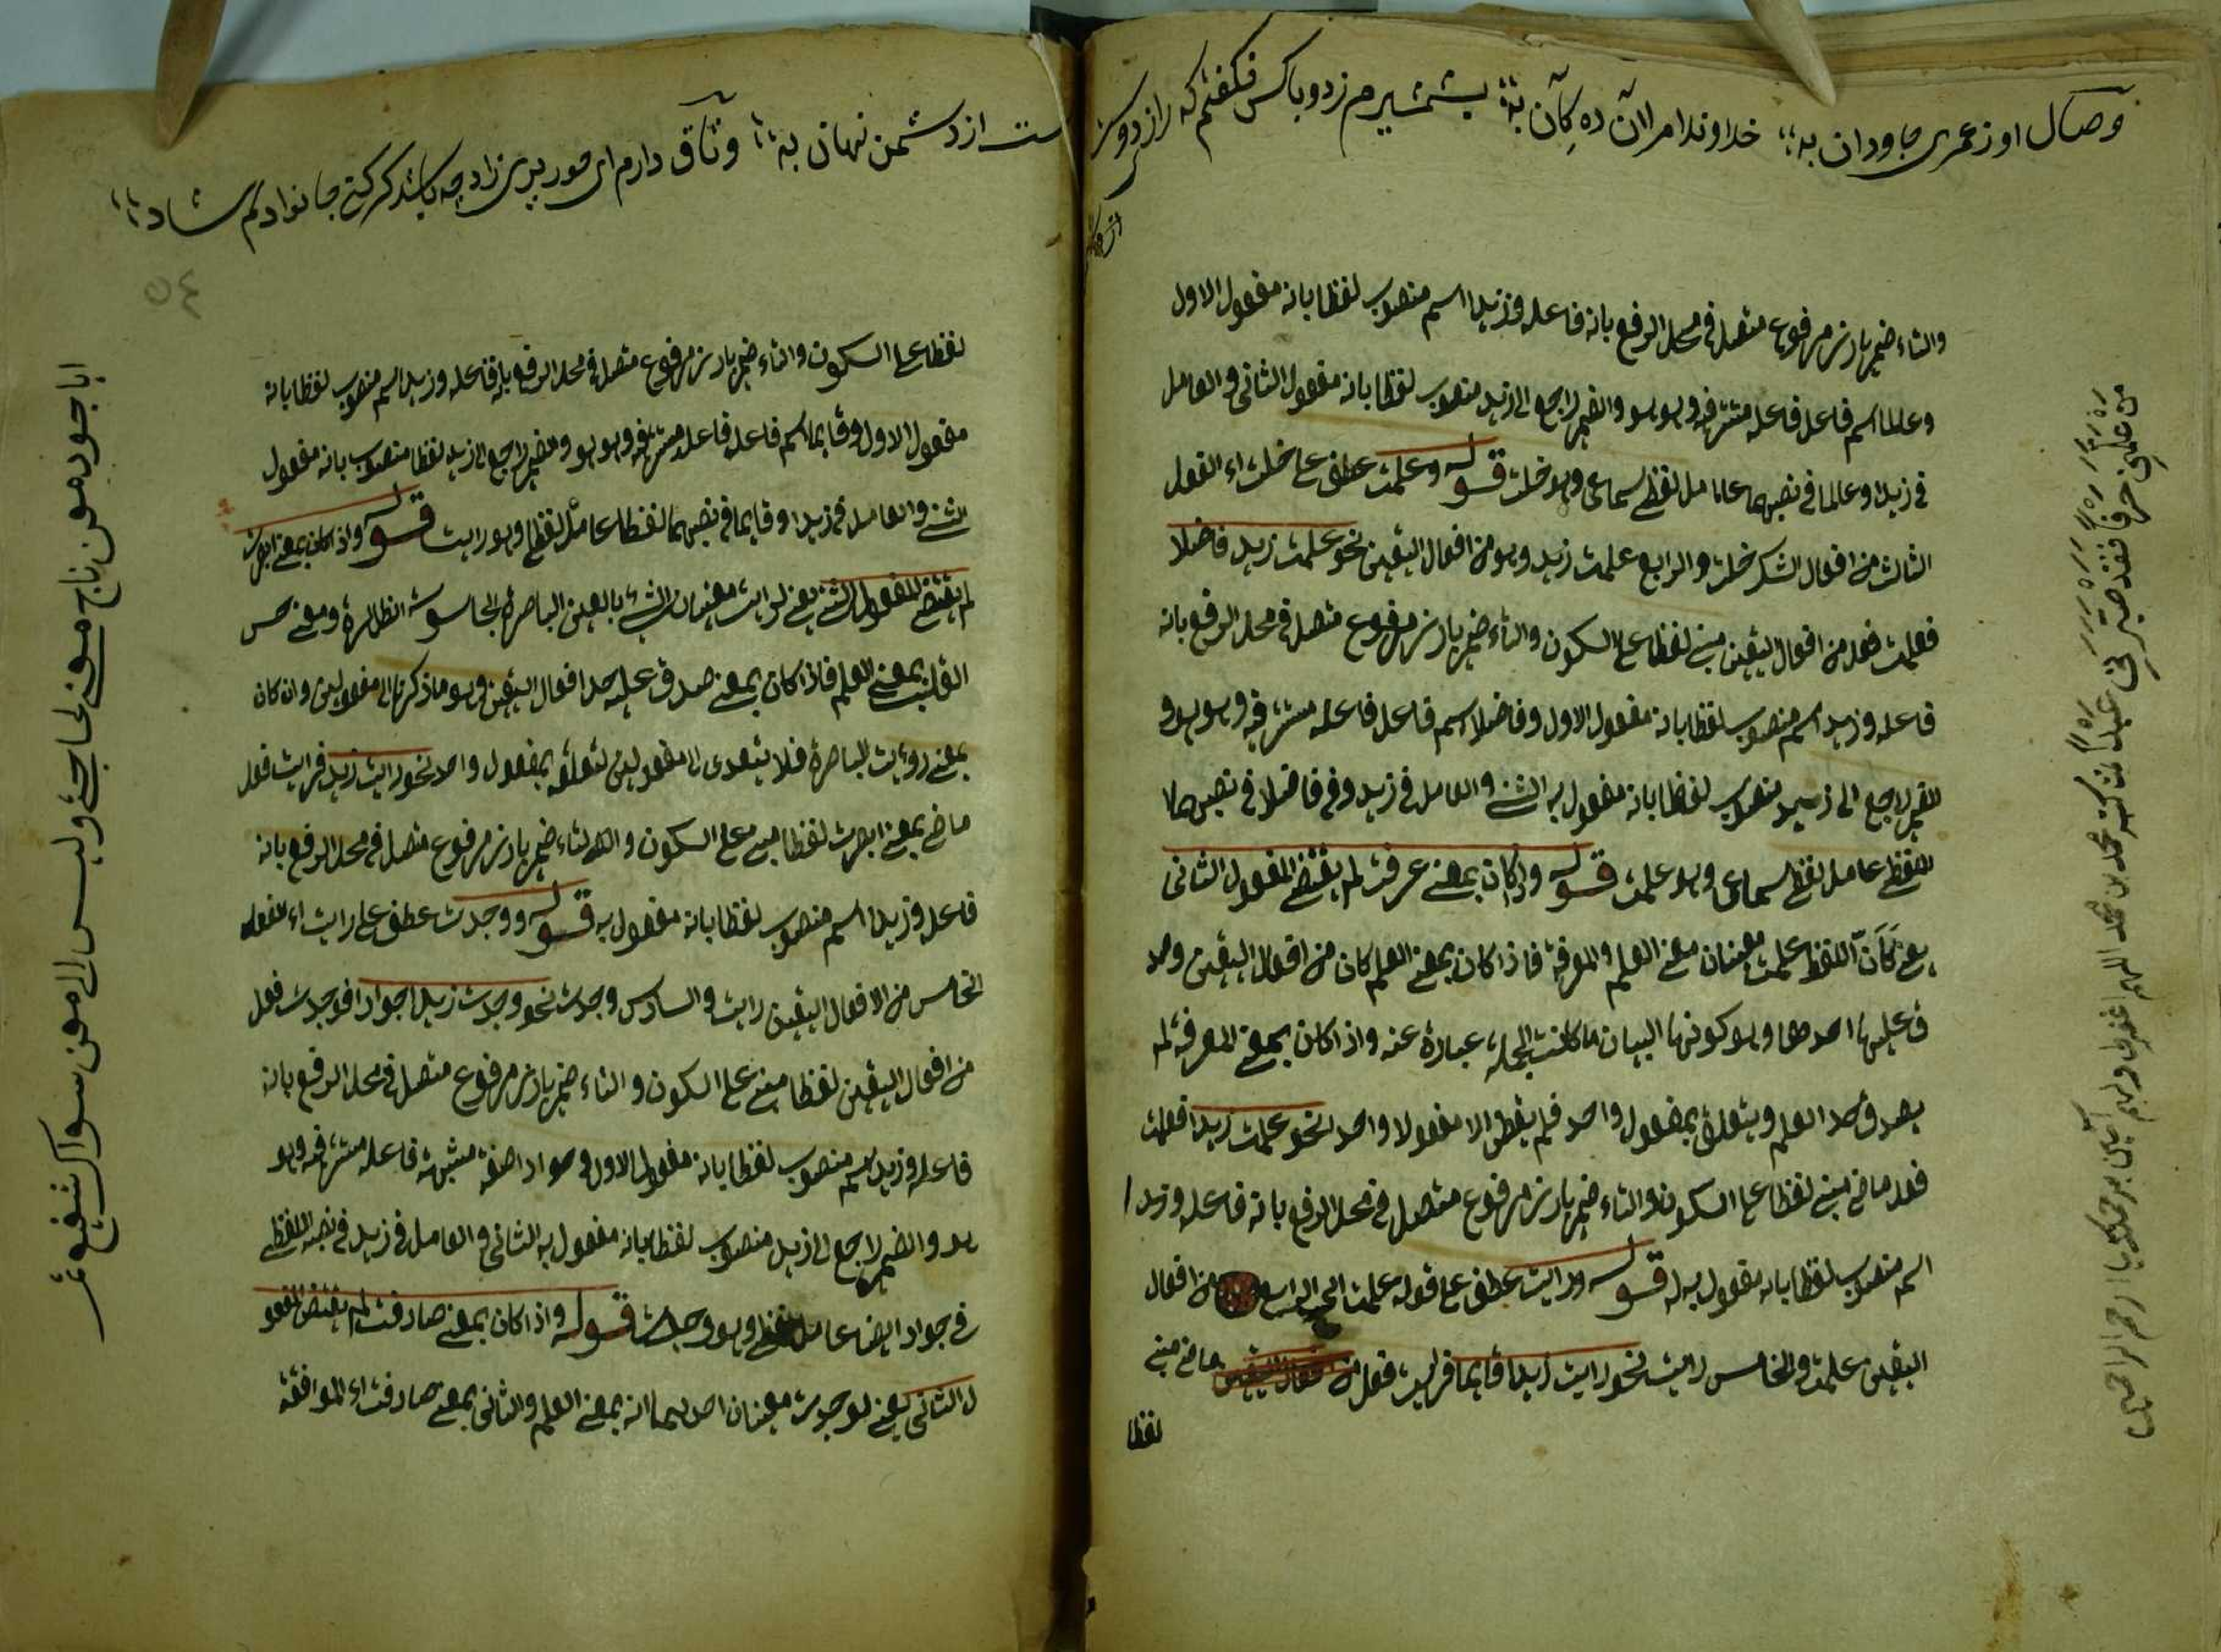 وصال او ز عمری جاودان به خداوندا مرا آن ده که آن به بشمشیرم زد و باکس نکفتم که راز دوست
والتاء ضمیر بارز مرفوع متصل فی محل الرفع بانه فاعله وزیدا اسم منصوب لفظا بانه مفعول الاول
وعالما اسم فاعل فاعله مستتر فیه وهو هو والضمیر راجع الی زید منصوب لفظا بانه مفعول الثانی والعامل
فی زیدا وعالما فی نصبهما عامل لفظی سماعی وهو خلت قوله وعلمت عطف علی خلت اء الفعل
الثالث من افعال الشک خلت والرابع علمت زید وهو من افعال الیقین نحو علمت زید فاضلا
فعلمت فعل من افعال الیقین مبنی لفظا علی السکون والتاء ضمیر بارز مرفوع متصل فی محل الرفع بانه
فاعله وزید اسم منصوب لفظا بانه مفعول الاول وفاضلا اسم فاعل فاعله مستتر فیه وهو هو و
الضمیر راجع الی زید منصوب لفظا بانه مفعول به الثنی والعامل فی زید وفی فاضلا فی نصبهما
لفظی عامل لفظی سماعی وهو علمت قوله واذا کان بمعنی عرفت لم یقتضی المفعول الثانی
یعنی کان اللفظ علمت معنیان معنی العلم والمعرفة فاذا کان بمعنی العلم کان من افعال الیقین وصد
ق علیها احدهما وهو کونها البیان ما کانت الجملة عبارة عنه واذا کان بمعنی المعرفة لم
یصدق حد العلم ویتعلق بمفعول واحد فلم یقتض الا مفعولا واحد نحو علمت زیدا فعلمت
فعل ماضی مبنی لفظا علی السکون والتاء ضمیر بارز مرفوع متصل فی محل الرفع بانه فاعله وزیدا
اسم منصوب لفظا بانه مفعول به له قوله ورایت عطف علی قوله علمت الی الرابع من افعال
الیقین علمت والخامس رایت نحو رایت زیدا قایما فرایت فعل ماضی مبنی
لفظا
من علمنی حرفا فقد صیرنی عبدا کتبه محمد بن محمد اللهم اغفر لی ولهم آمین برحمتک یا ارحم الراحمین
ست از دشمن نهان به وثاق دارم ای حور پری زاد چه باشد کر کنی جانوادلم شاد
٥٤
لفظا علی السکون والتاء ضمیر بارز مرفوع متصل فی محل الرفع بانه فاعله وزیدا اسم منصوب لفظا بانه
مفعول الاول وقایما اسم فاعل فاعله مستتر فیه وهو هو والضمیر راجع الی زید لفظا منصوب بانه مفعول
الثنی والعامل فی زیدا وقایما فی نصبهما لفظا عامل لفظی وهو رایت قوله واذا کان بمعنی ابصرت
لم یقتضی المفعول الثنی یعنی لرایت معنیان الشیء بالعین الباصرة الجاسوسه النظارة ومعنی حس
القلب بمعنی العلم فاذا کان بمعنی صدق علیه حد افعال الیقین وهو ما ذکرنا الی مفعولین وان کان
بمعنی رویت الباصرة فلا یتعدی الا مفعولین لتعلقه بمفعول واحد نحو رایت زید فرایت فعل
ماضی بمعنی ابصرت لفظا مبنی علی السکون والتاء ضمیر بارز مرفوع متصل فی محل الرفع بانه
فاعل وزیدا اسم منصوب لفظا بانه مفعول به قوله ووجدت عطف علی رایت اء الفعل
الخامس من الافعال الیقین رایت والسادس وجدت نحو وجدت زیدا جوادا فوجدت فعل
من افعال الیقین لفظا مبنی علی السکون والتاء ضمیر بارز مرفوع متصل فی محل الرفع بانه
فاعله وزید اسم منصوب لفظا بانه مفعول الاول وجوادا صفة مشبهة فاعله مستتر فیه وهو
هو والضمیر راجع الی زید منصوب لفظا بانه مفعول به الثانی والعامل فی زید فی نصبه اللفظی
فی جواد ایضا عامل لفظی وهو وجدت قوله واذا کان بمعنی صادفت لم یقتض المفعو
ل الثانی یعنی لوجدت معنیان احدیهما انه بمعنی العلم والثانی بمعنی صادفت اء الموافقة